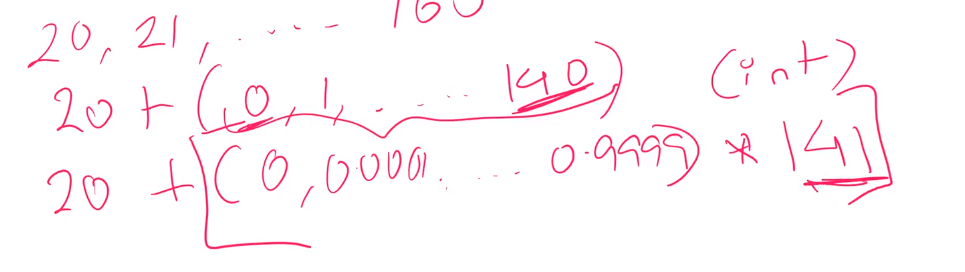 20, 21, ..... 160
20 + (0, 1, ..... 140) (int)
20 + (0, 0.0001. .... 0.9999) * 141